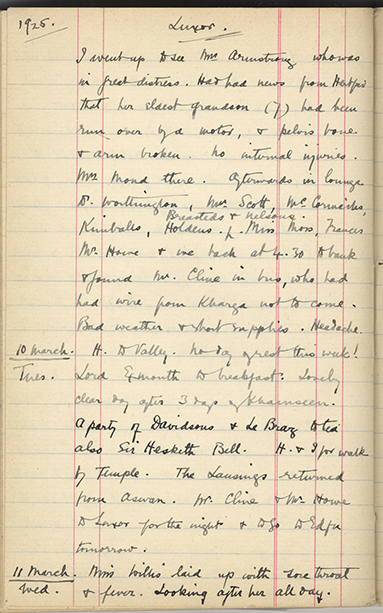 1925. Luxor.
I went up to see Mrs Armstrong who was
in great distress. Had had news from Hertford
that her eldest grandson (7) had been
run over by a motor, & pelvis bone
& arm broken. No internal injuries.
Mrs Mond there. Afterwards in lounge
Dr. Worthington, Mrs Scott, McCormicks,
Breasteds & Nelsons.
Kimballs, Holdens. Miss Moss, Francis
Mr Howe & we back at 4.30 to bank
& found Mr. Cline in bus, who had
had wire from Kharga not to come.
Bad weather & short supplies. Headache.
10 March. H. to Valley. No day of rest this week!
Tues. Lord Exmouth to breakfast. Lovely
clear day after 3 days of Khamseen.
A party of Davidsons & Le Braz to tea
also Sir Hesketh Bell. H. & I for walk
by Temple. The Lansings returned
from Aswan. Mr. Cline & Mr Howe
to Luxor for the night & to go to Edfu
tomorrow.
11 March. Miss Willis laid up with sore throat
Wed. & fever. Looking after her all day.